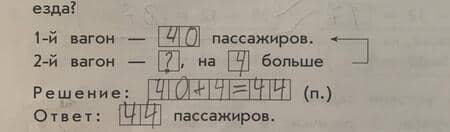 езда?
1-й вагон — 40 пассажиров.
2-й вагон — ?, на 4 больше
Решение: 40+4=44 (п.)
Ответ: 44 пассажиров.